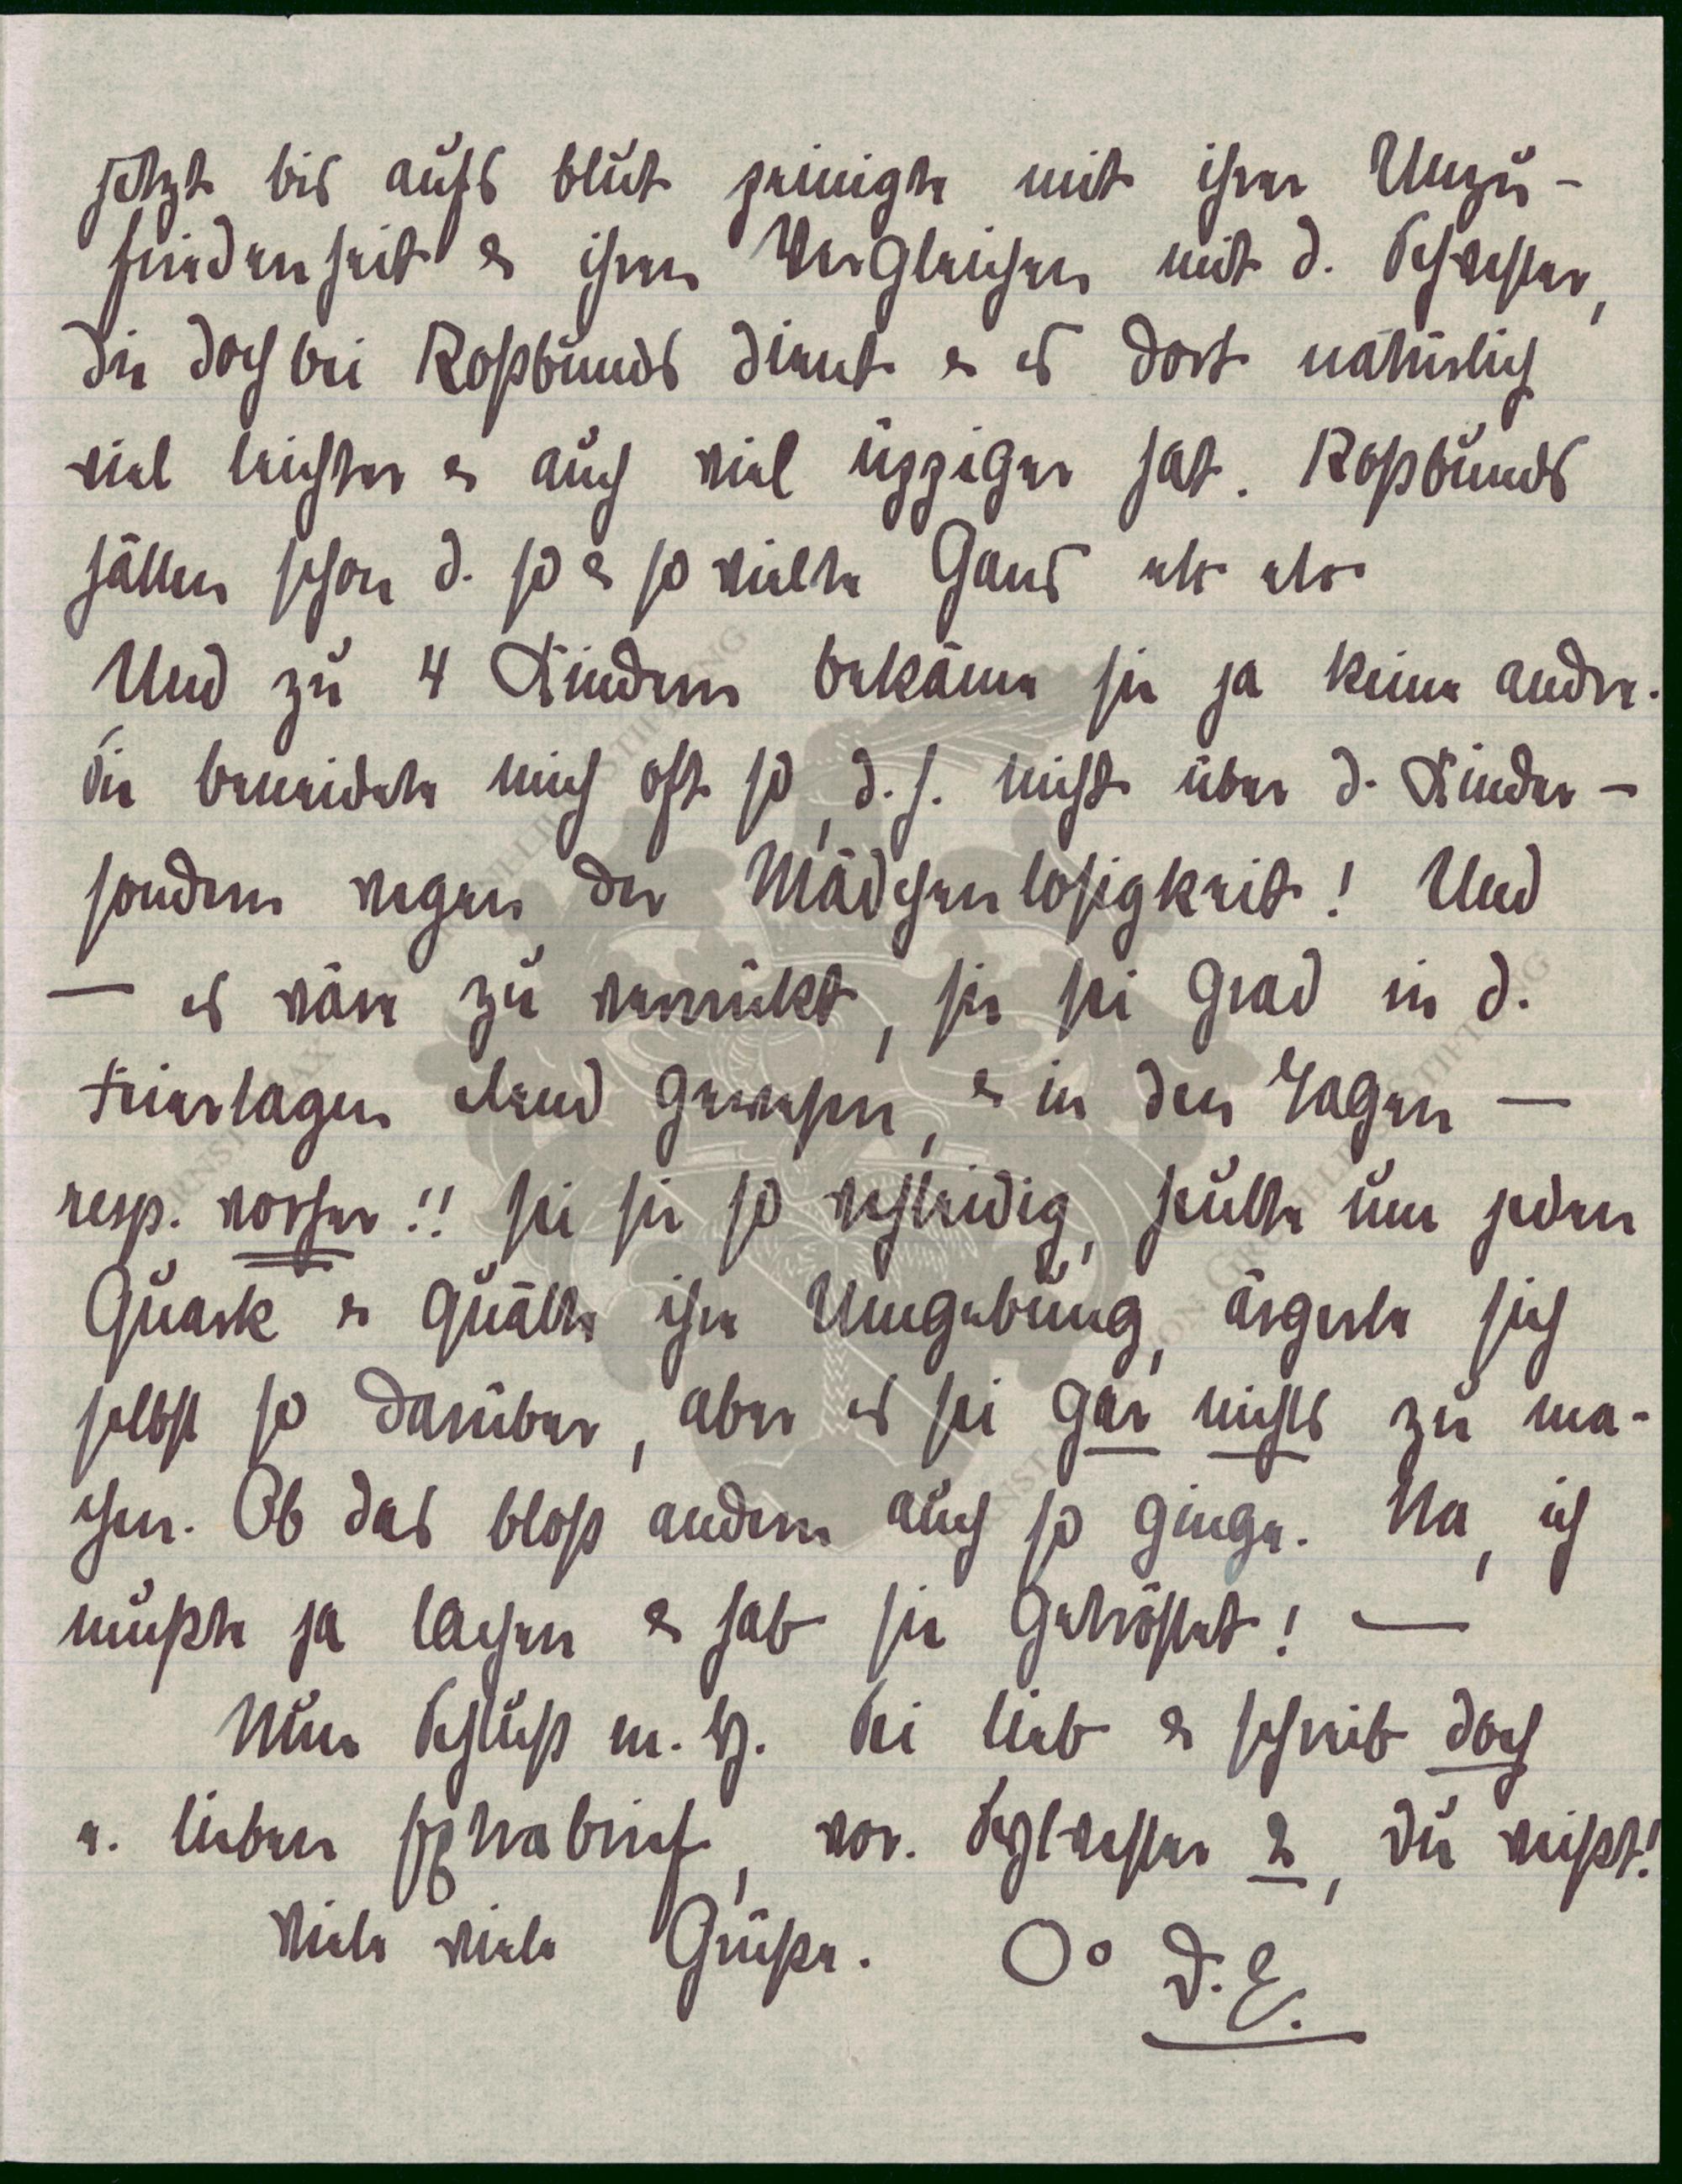 jetzt bis aufs blut peinigte mit ihrer Unzu-
friedenheit & ihren Vergleichen mit d. Schwester,
die doch bei Roßbunds dient & es dort natürlich
viel leichter & auch viel üppiger hat. Roßbunds
hätten schon d. so & so vielte Gans etc etc
Und zu 4 Kindern bekäme sie ja keine andre.
Sie beneidete mich oft so, d. h. nicht über d. Kinder -
sondern wegen der Mädchenlosigkeit! Und
— es wäre zu verrückt, sie sei grad in d.
Feiertagen elend gewesen, & in den Tagen —
resp. vorher!! sei sie so wehleidig, heulte um jeden
Quark & quälte ihre Umgebung, ärgerte sich
selbst so darüber, aber es sei gar nichts zu ma-
chen. Ob das bloß andern auch so ginge. Na, ich
mußte ja lachen & hab sie getröstet! —
Nun Schluß m. H. Sei lieb & schreib doch
e. lieben extrabrief, vor. Sylvester 2, du weißt!
Viele viele Grüße. O° D. E.
ERNST MAX VON GRUNELIUS-STIFTUNG